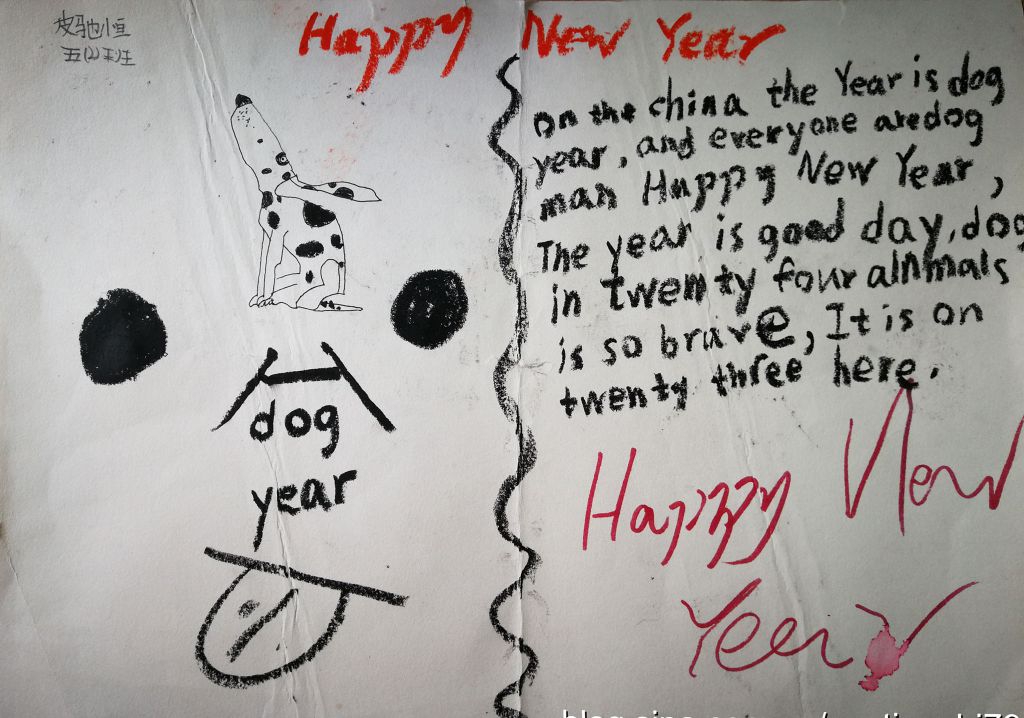 皮驰恒
五(2)班
Happy New Year
dog
year
on the china the Year is dog
year, and everyone are dog
man Happy New Year,
The year is good day, dog
in twenty four alnmals
is so brave, It is on
twenty three here.
Happy New
Year